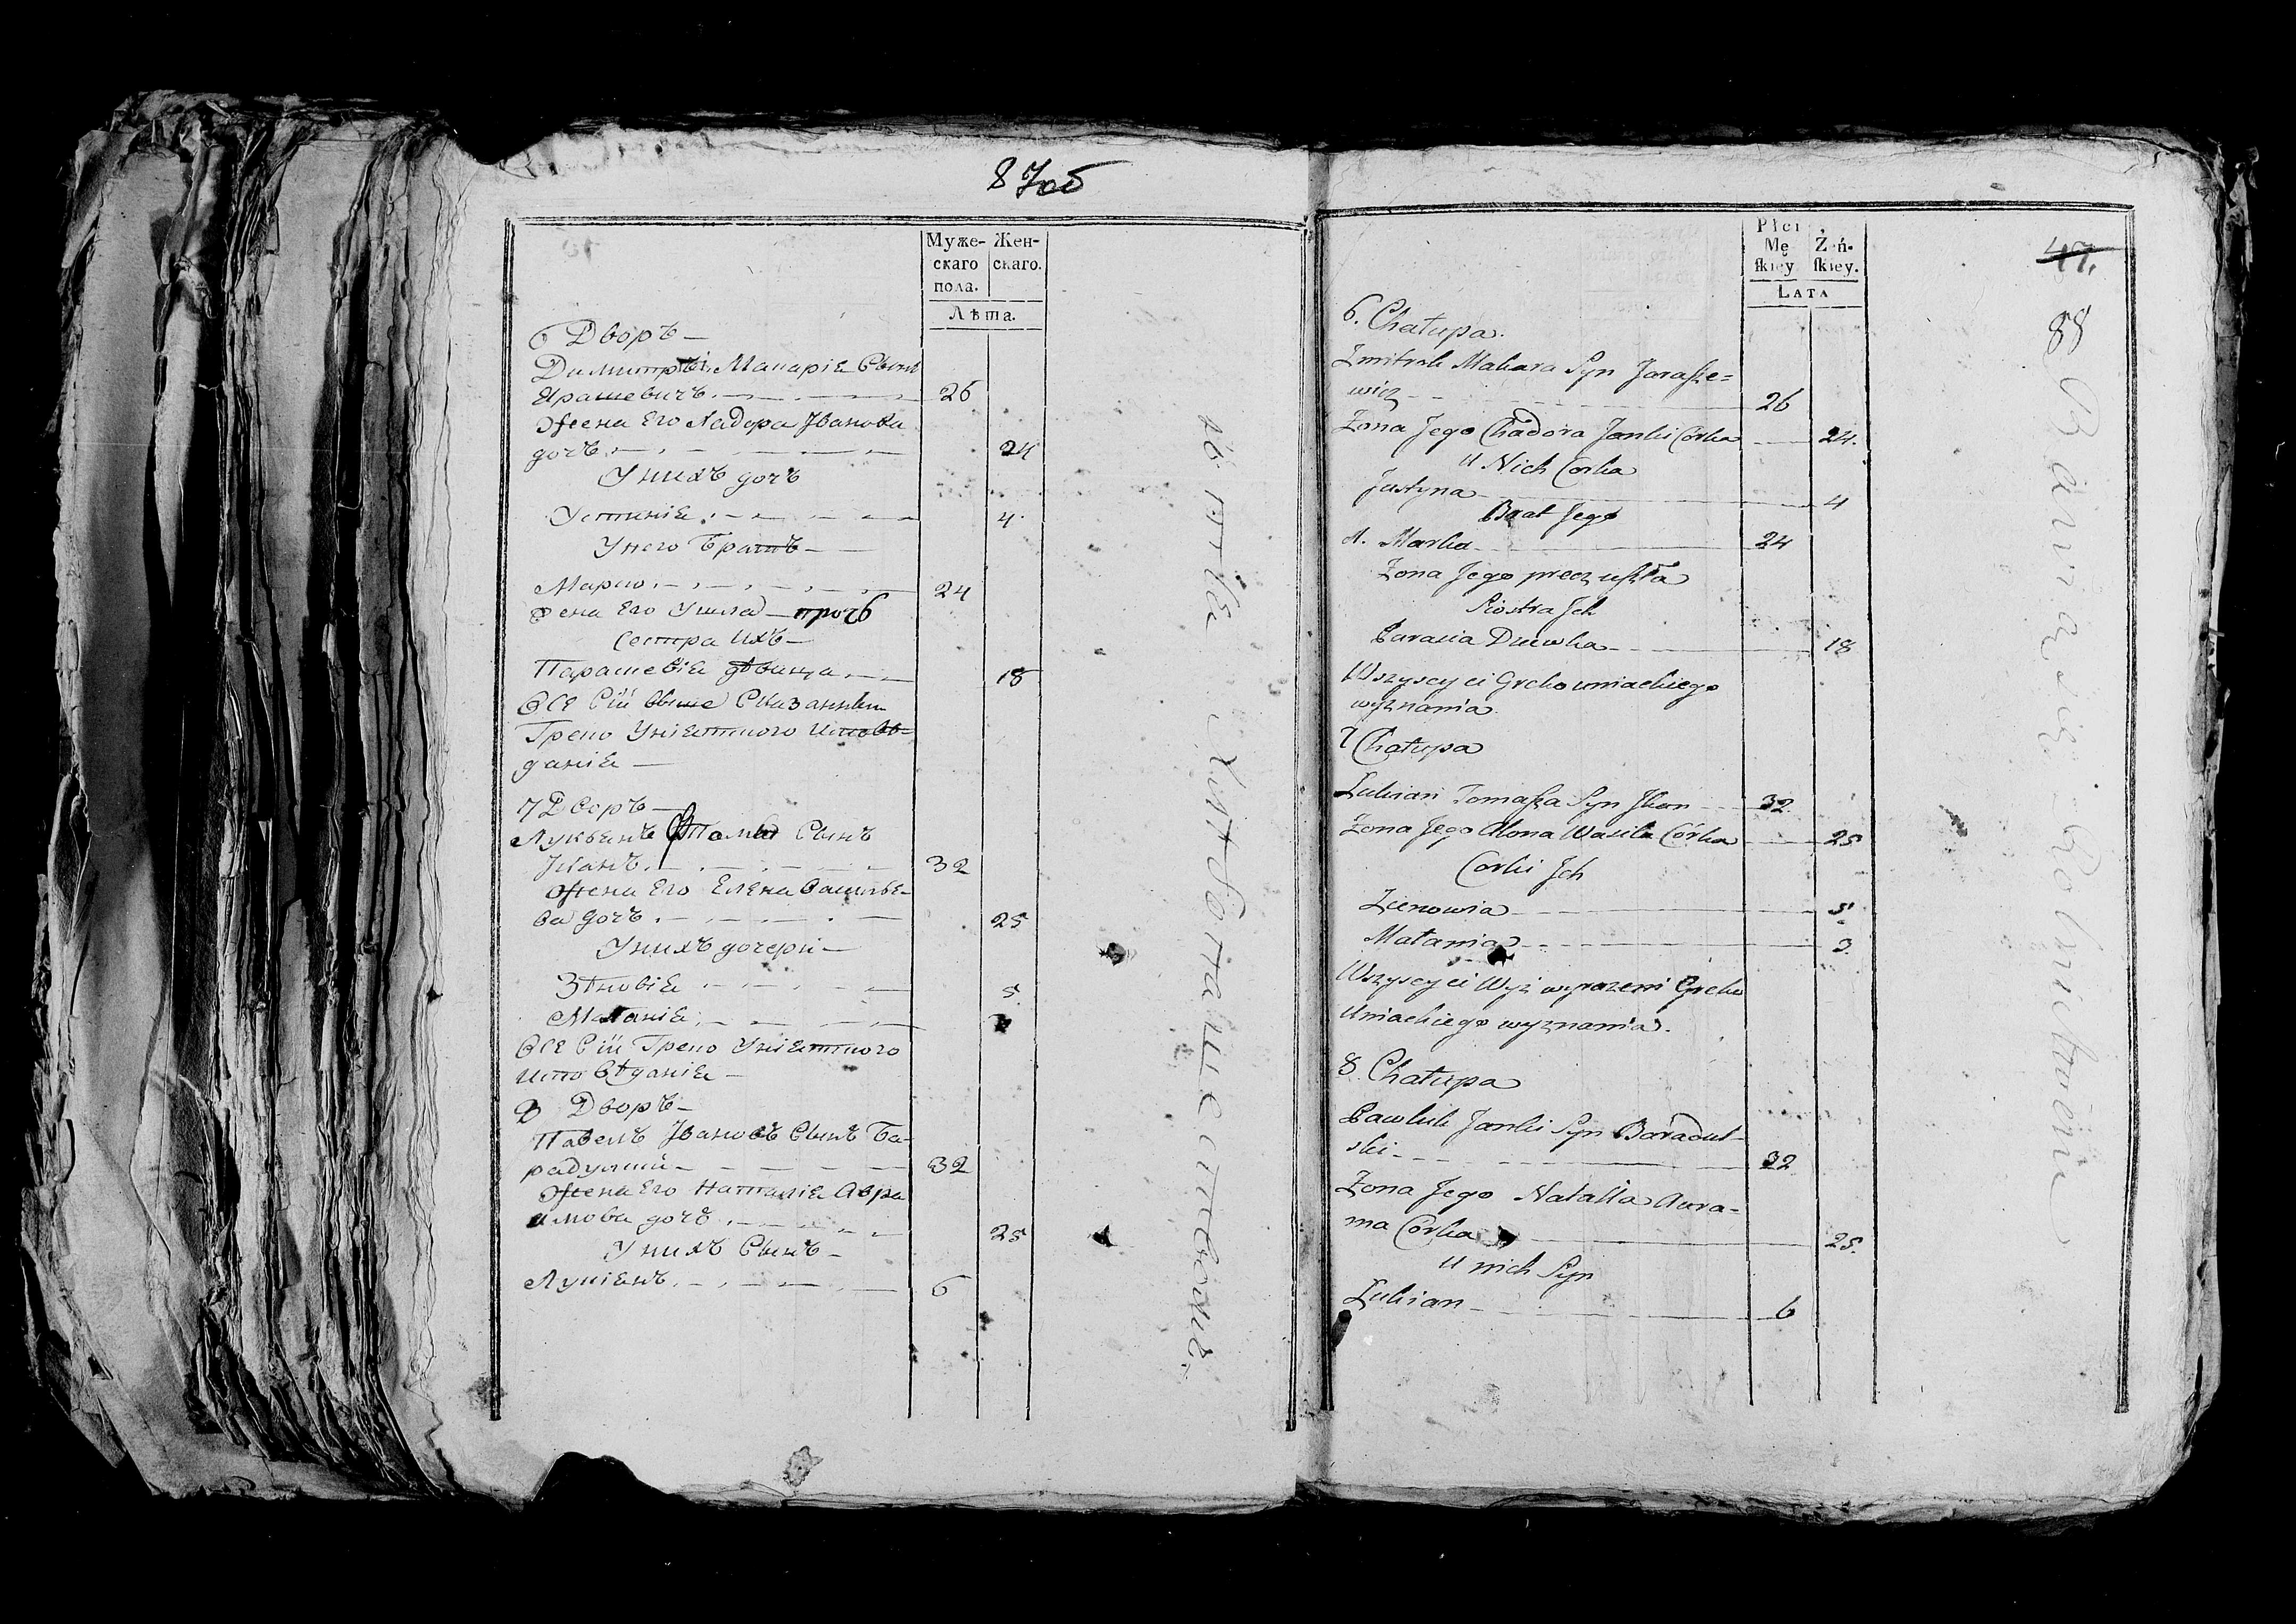 87об
Муже- Жен-
скаго скаго.
пола.
Лѣта.
6 Дворъ —
Димитрѣй Макаріѧ Сынъ
Ярашевичъ 26
Жена Его Хадора Іванова
дочъ 24
У нихъ дочъ
Устиніѧ 4
У него Братъ —
Марко 24
Жена Его Ушла прочь
Сестра Ихъ —
Парашевіѧ дѣвица 18
Всѣ Сіи выше Сказанны
Греко Уніѧтского исповѣ=
даніѧ —
7 Дворъ —
Лукьѧнъ Томы Сынъ
Іканъ 32
Жена Его Елена Василье-
ва дочъ 25
У нихъ дочери —
Зѣновіѧ 5
Маланіѧ 3
Всѣ Сіи Греко Уніѧтского
исповѣданіѧ —
8 Дворъ —
Павелъ Івановъ Сынъ Ба-
радулкій 32
Жена Его Наталіѧ Авра
имова дочъ 25
У нихъ Сынъ —
Лукіѧнъ 6
Płci
Mę Żeń-
ſkiey ſkiey.
LATA
47.
88
6. Chałupa.
Zmitrok Makara Syn Jaraſze=
wicz 26
Zona Jego Chadora Janki Córka 24.
u Nich Corka
Justyna 4
Brat Jego
Marka 24
Zona Jego precz uſzła
Siostra Ich
Parasia Dziewka 18
Wszyscy ci Greko uniackiego
wyznania
7 Chałupa
Łukian Tomaſza Syn Ikan 32
Zona Jego Alona Wasila Córka 25
Corki Ich
Zienowia 5
Małania 3
Wszyscy ci Wyż wyrażeni Greko
Uniackiego wyznania.
8. Chałupa
Pawluk Janki Syn Baradul-
ski 32
Zona Jego Natalla Aura-
ma Córka 25.
u nich Syn
Łukian 6